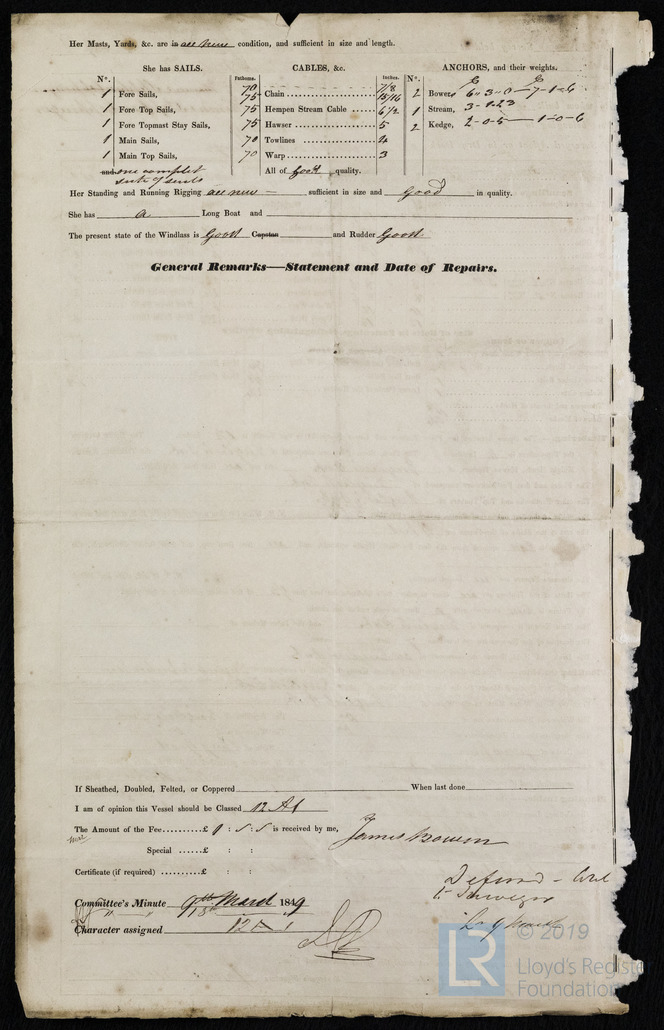 Her Masts, Yards, &c. are in all new condition, and sufficient in size and length.
She has SAILS.
N°.
1 Fore Sails,
1 Fore Top Sails,
1 Fore Topmast Stay Sails,
1 Main Sails,
1 Main Top Sails,
and one complet
suite of sails
CABLES, &c.
Fathoms. Inches.
70 7/8
75 Chain 15/16
75 Hempen Stream Cable 6 1/2
75 Hawser 5
70 Towlines 4
70 Warp 3
All of Good quality.
ANCHORS, and their weights.
N°.
2 Bowers 6"3"0 7-1-6
1 Stream, 3-1-23
2 Kedge, 2-0-5 1-0-6
Her Standing and Running Rigging all new sufficient in size and Good in quality.
She has a Long Boat and
The present state of the Windlass is Good Capstan and Rudder Good
General Remarks—Statement and Date of Repairs.
If Sheathed, Doubled, Felted, or Coppered When last done
I am of opinion this Vessel should be Classed 12 A1
The Amount of the Fee £ : 5 : 5 is received by me,
James Bowen
Special £ : :
Certificate (if required) £ : :
Committee's Minute 9th March 1849
" " 13th
Character assigned 12 A 1
© 2019
LR
Lloyd's Register
Foundation